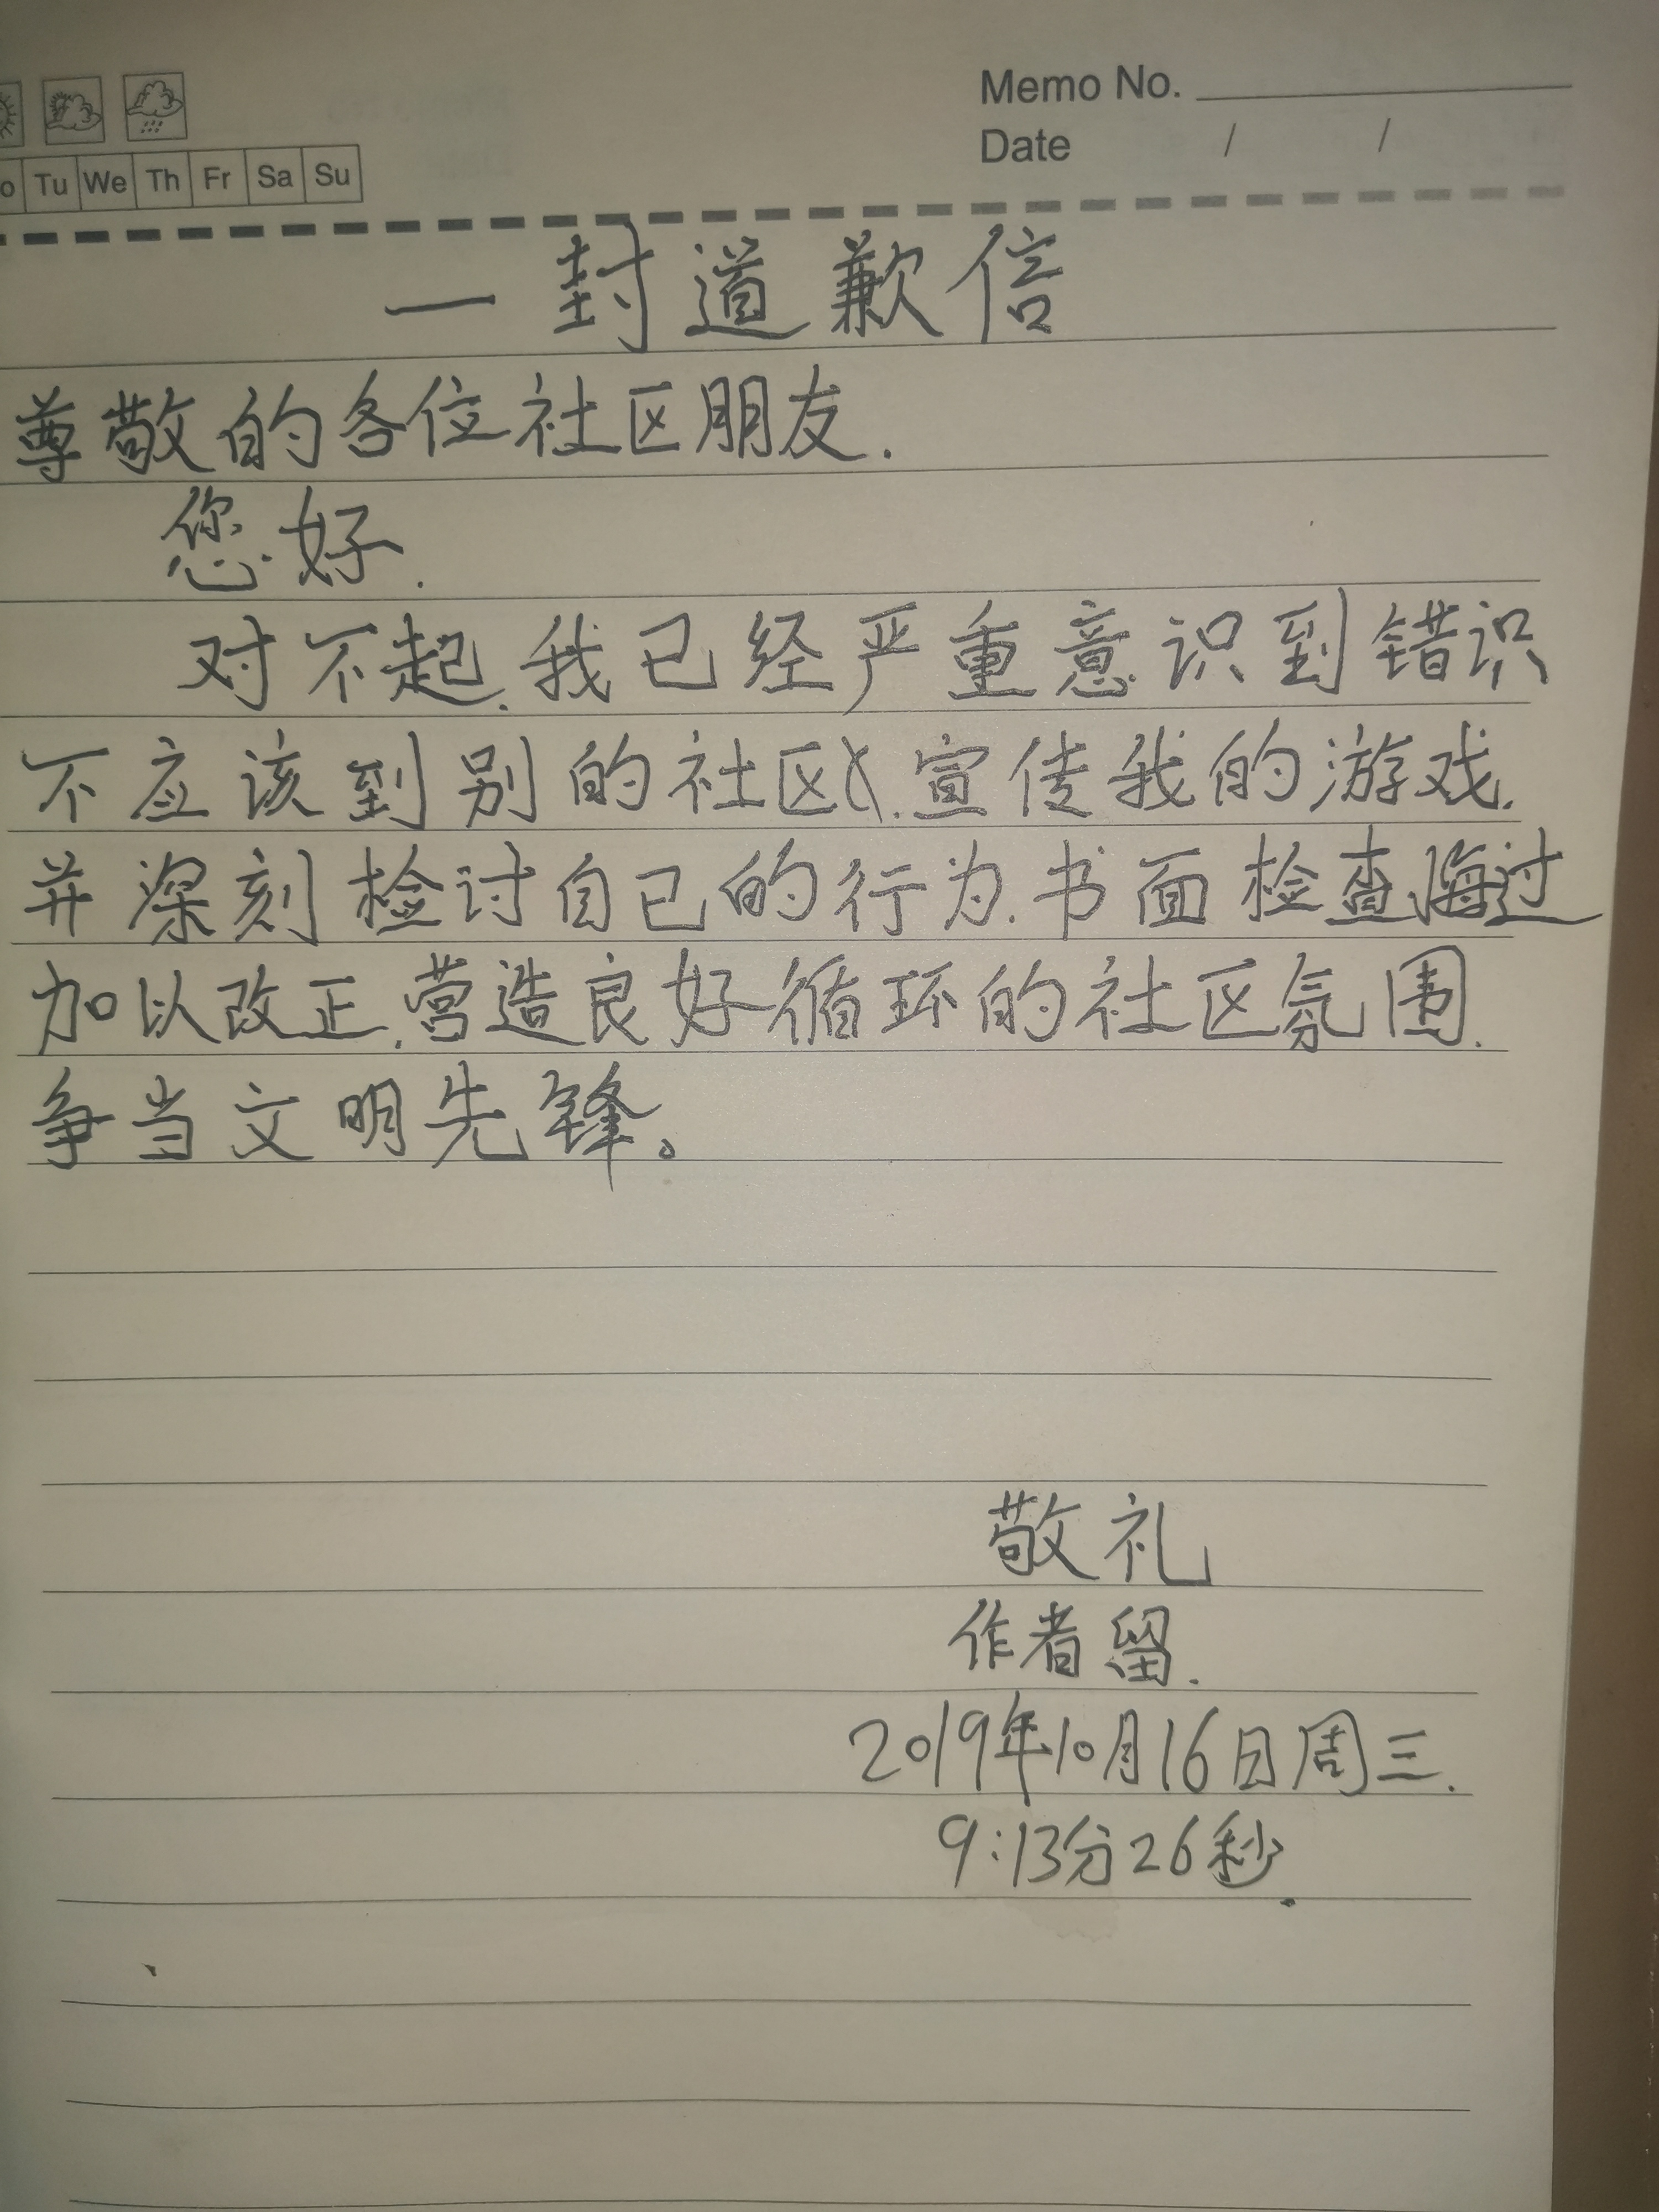 Memo No.
Date / /
o Tu We Th Fr Sa Su
一封道歉信
尊敬的各位社区朋友.
您好.
对不起.我已经严重意识到错识
不应该到别的社区.宣传我的游戏.
并深刻检讨自己的行为.书面检查悔过
加以改正.营造良好循环的社区氛围.
争当文明先锋。
敬礼
作者留.
2019年10月16日周三.
9:13分26秒.